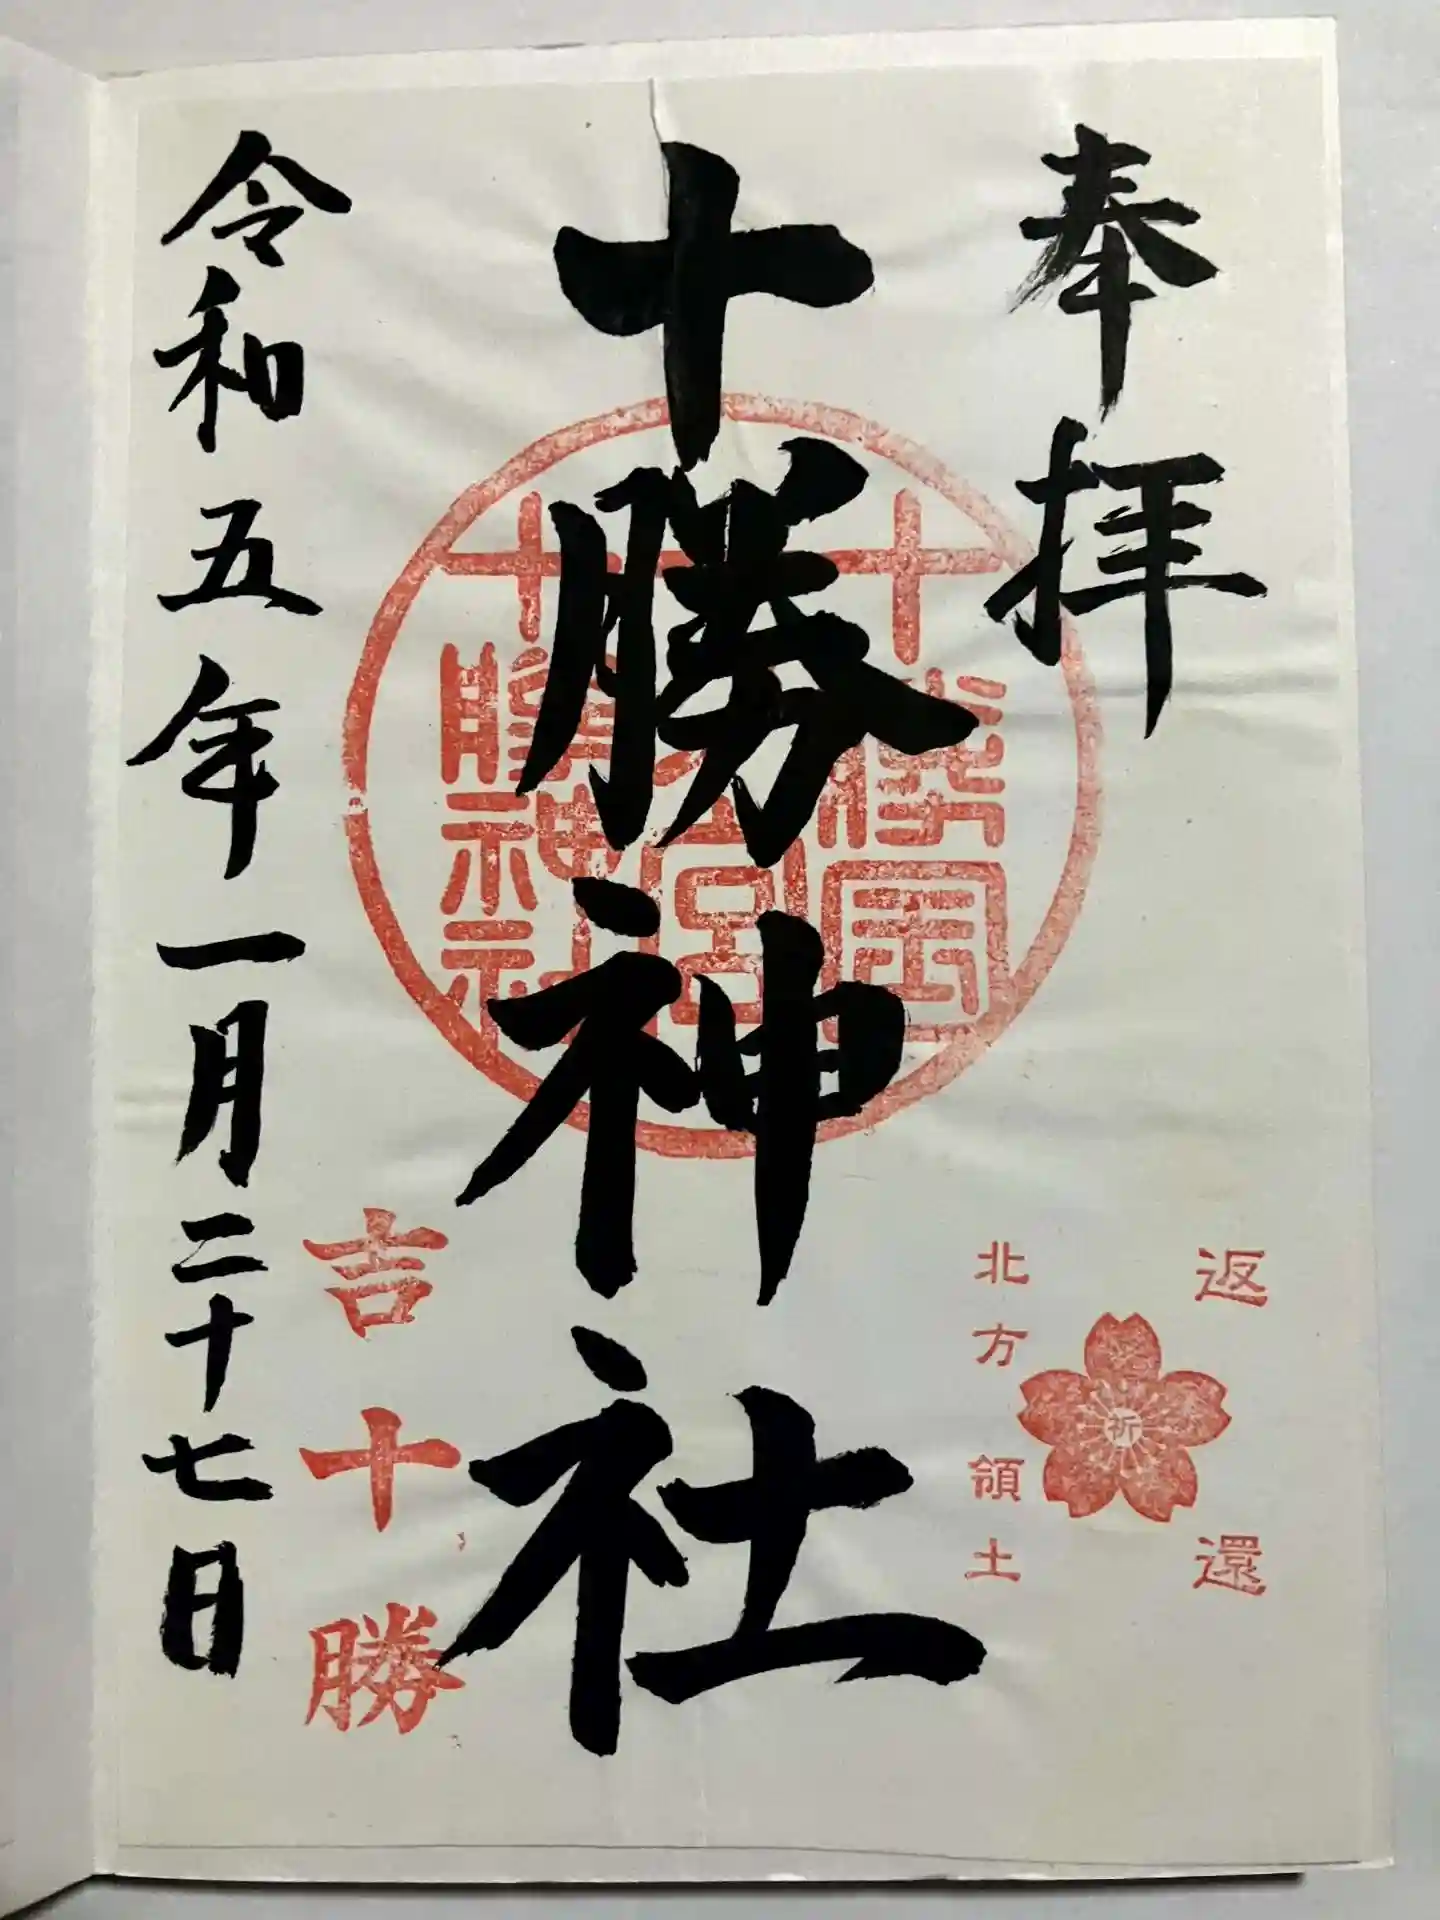 奉拝
返還
祈
北方領土
十勝神社
十勝国
一宮
十勝神社
吉十勝
令和五年一月二十七日